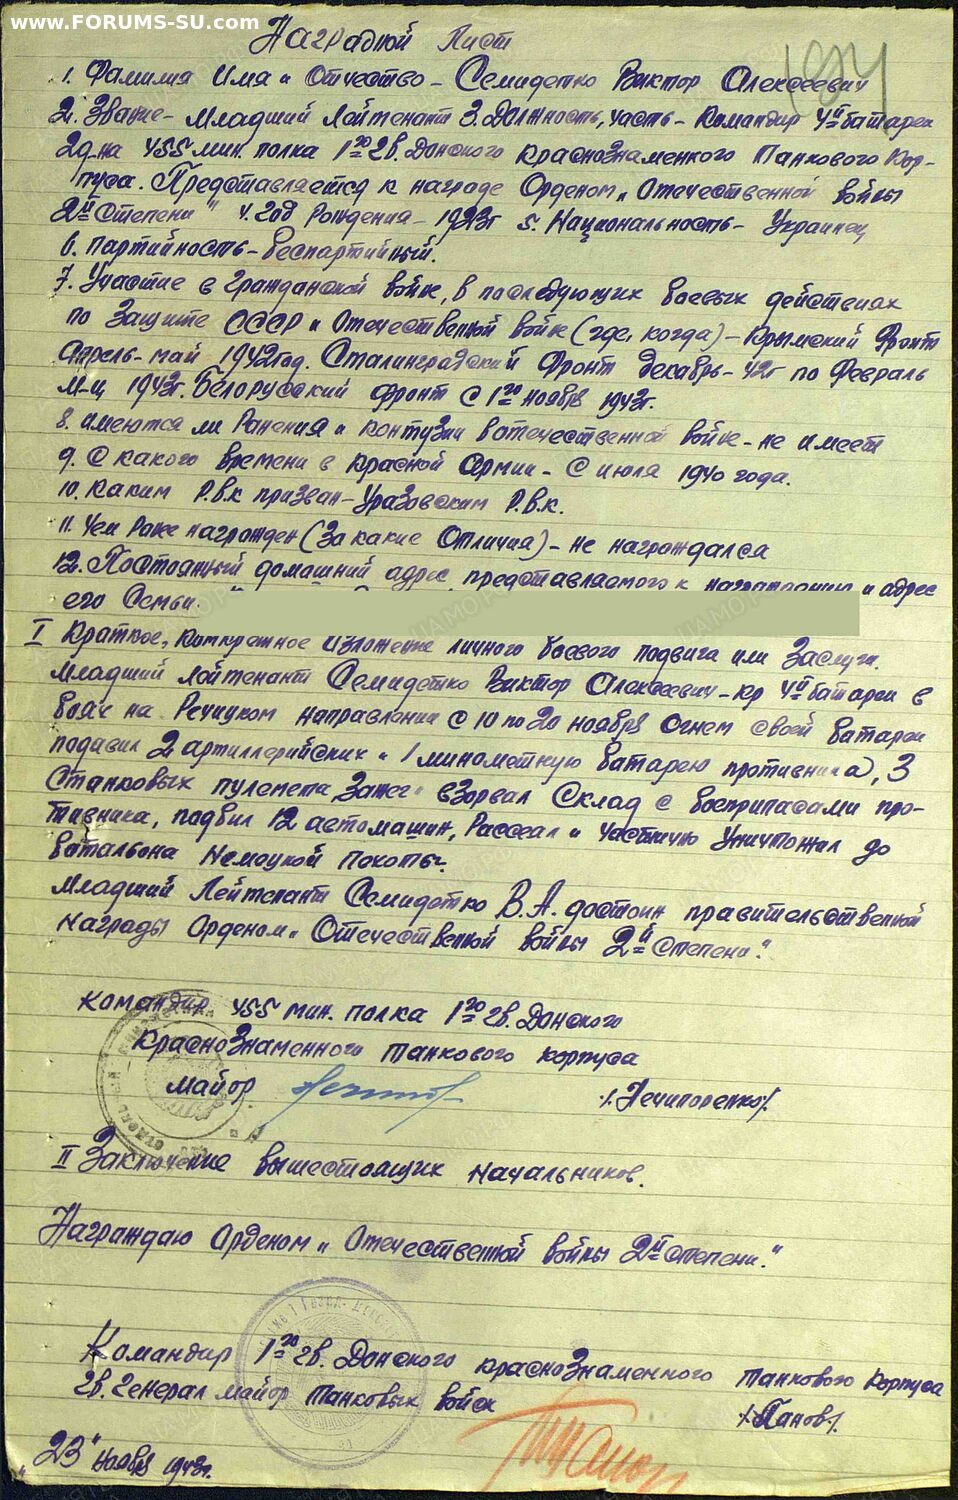 www.FORUMS-SU.com
Наградной Лист
1. Фамилия Имя и Отчество - Семидетко Виктор Алексеевич
2. Звание - Младший Лейтенант 3. Должность, часть - Командир 4й батареи
2 д-на 455 мин. полка 1го гв. Донского Краснознаменного Танкового Кор-
пуса. Представляется к награде Орденом „Отечественной войны
2й Степени" 4. Год Рождения - 1923г 5. Национальность - Украинец
6. Партийность - беспартийный.
7. Участие в Гражданской войне, в последующих боевых действиях
по Защите СССР и Отечественной войне (где, когда) - Крымский Фронт
Апрель - май 1942 год. Сталинградский Фронт декабрь - 42г по Февраль
м-ц 1943г. Белорусский фронт с 1го ноября 1943г.
8. имеются ли Ранения и контузии в отечественной войне - не имеет
9. С какого времени в Красной Армии - С июля 1940 года.
10. Каким Р.В.К призван - Уразовским Р.В.К.
11. Чем Ранее награжден (За какие Отличия) - не награждался
12. Постоянный домашний адрес представляемого к награждению и адрес
его Семьи.
I Краткое, конкретное изложение личного боевого подвига или Заслуги.
Младший Лейтенант Семидетко Виктор Алексеевич - кр 4й батареи в
боях на Речицком направлении с 10 по 20 ноября Огнем своей батареи
подавил 2 артиллерийских и 1 минометную батарею противника, 3
Станковых пулемета, Зажег и взорвал Склад с боеприпасами про-
тивника, подбил 12 автомашин, Рассеял и частично Уничтожил до
батальона Немецкой пехоты.
Младший Лейтенант Семидетко В.А. достоин правительственной
Награды Орденом „Отечественной войны 2й Степени".
Командир 455 мин. полка 1го гв. Донского
Краснознаменного танкового корпуса
майор /.Нечипоренко/.
II Заключение вышестоящих начальников.
Награждаю Орденом „Отечественной войны 2й степени."
Командир 1го гв. Донского Краснознаменного Танкового Корпуса
гв. Генерал майор Танковых войск /.Панов/.
„23" Ноября 1943г.